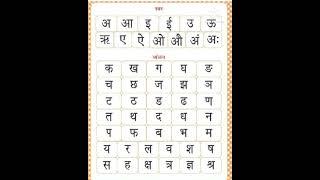 स्वर
अ आ इ ई उ ऊ
ऋ ए ऐ ओ औ अं अः
व्यंजन
क ख ग घ ङ
च छ ज झ ञ
ट ठ ड ढ ण
त थ द ध न
प फ ब भ म
य र ल व श ष
स ह क्ष त्र ज्ञ श्र